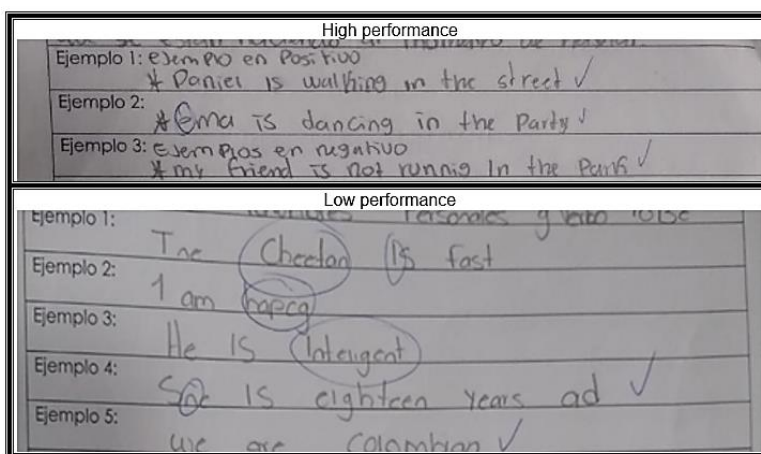 High performance
Ejemplo 1: ejemplo en Positivo
* Daniel is walking in the street ✓
Ejemplo 2:
* Ema is dancing in the Party ✓
Ejemplo 3: Ejemplos en negativo
* my friend is not runnig In the Park ✓
Low performance
Ejemplo 1: Personales y verbo tobe
The Cheetah Is fast
Ejemplo 2:
I am
Ejemplo 3:
He is Inteligent
Ejemplo 4:
She is eighteen years ✓
Ejemplo 5:
we are Colombian ✓